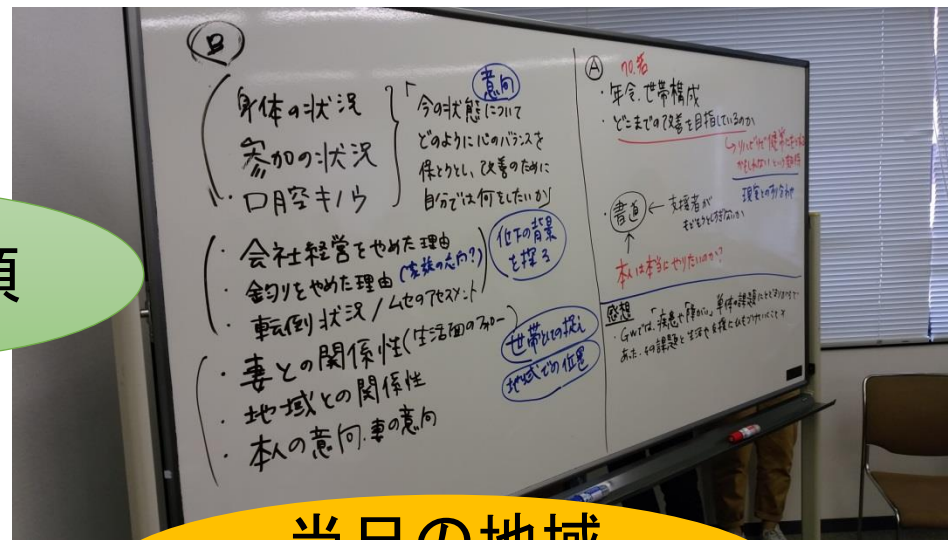 B
身体の状況
参加の状況
口腔キノウ
意向
「今の状態について
どのように心のバランスを
保とうとし、改善のために
自分では何をしたいか
・会社経営をやめた理由
・釣りをやめた理由(家族の意向?)
・転倒状況/ムセのアセスメント
低下の背景
を探る
・妻との関係性(生活面のフォロー)
・地域との関係性
・本人の意向.妻の意向
世帯としての捉え
地域での位置
A
70.代
・年令.世帯構成
・どこまでの改善を目指しているのか
現実との
・書道 ← 支援者が
本人は本当にやりたいのか?
感想
・GWでは、「疾患や障がい」単体の課題に
あた.その課題と生活や支援に
項
当日の地域